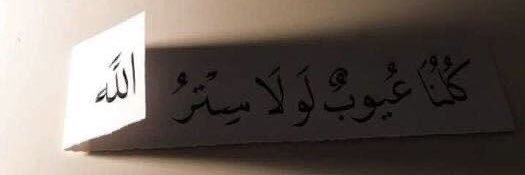 كُلُّنَا عُيُوبٌ لَوْلَا سِتْرُ اللَّه